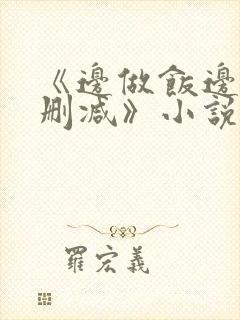 《邊做飯邊
刪减》小說
羅宏義